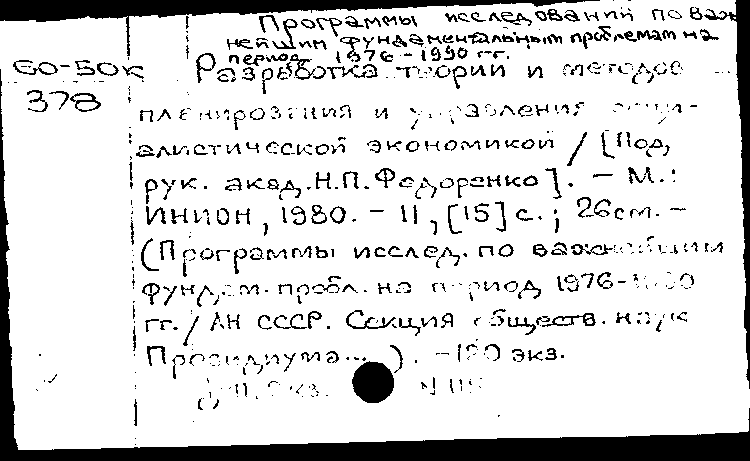 Программы исследований по важ
нейшим фундаментальным проблемам на
период 1976-1990 гг.
60-50к
378
Разработка теории и методов
планирования и управления соци-
алистической экономикой / [Под
рук. акад. Н.П. Федоренко]. - М.:
ИНИОН, 1980. - 11, [15] с.; 26см. -
(Программы исслед. по важнейшим
фундам. пробл. на период 1976-1990
гг. / АН СССР. Секция обществ. наук
Президиума...). - 120 экз.